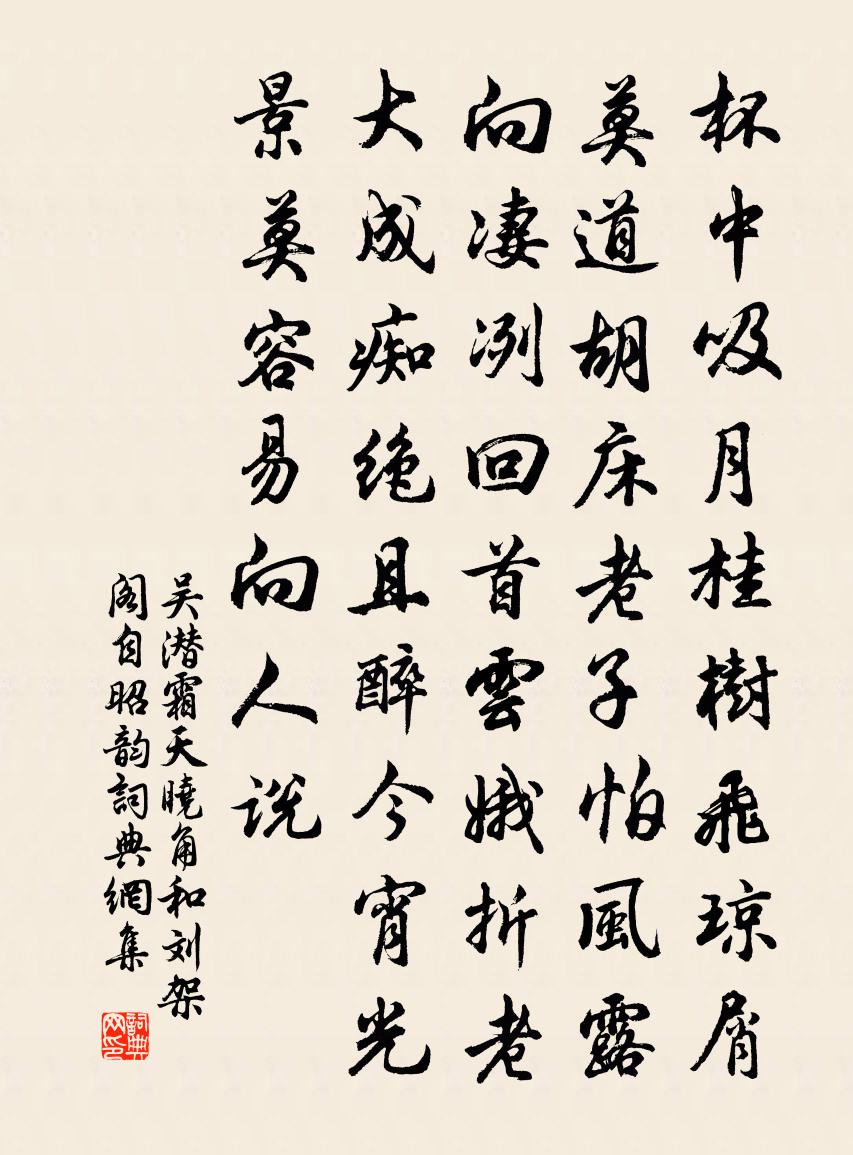 杯中吸月桂樹飛琼屑
莫道胡床老子怕風露
向凄冽回首雲娥折老
大成痴绝且醉今宵光
景莫容易向人说
吴潜霜天曉角和刘架
阁自昭韵詞典網集
詞典网印